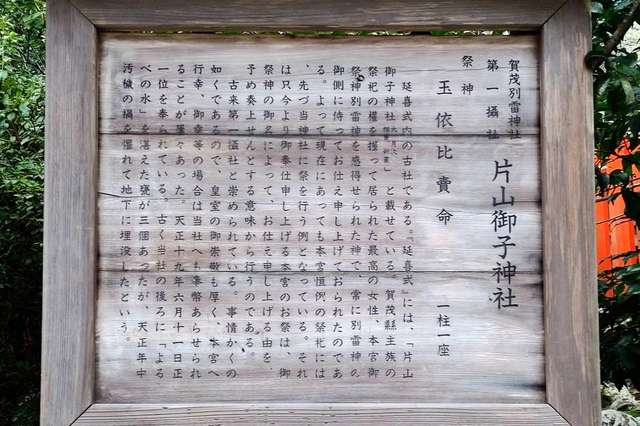 賀茂別雷神社
第一攝社 片山御子神社
祭神
玉依比賣命 一柱一座
延喜式内の古社である。『延喜式』には、「片山
御子神社 」と載せている。賀茂縣主族の
祭祀の權を握って居られた最高の女性、本宮御
祭神別雷神を感得せられた神で、常に別雷神の
御側に侍ってお仕え申し上げておられたのであ
る。よって現在にあっても本宮恒例の祭祀には
、先づ当神社に祭を行う例となっている。それ
は只今より御奉仕申し上げる本宮のお祭は、御
祭神の御名によって、お仕え申し上げる由を、
予め奏上せんとする意味から行うのである。
古来第一攝社と崇められている。事情かくの
如くであるので、皇室の御崇敬も厚く、本宮へ
行幸、御幸等の場合は当社へも奉幣あらせられ
ることが屡々あった。天正十九年六月十一日正
一位を奉られている。古く当社の後ろに「よる
べの水」を湛えた甕が三個あったが、天正年中
汚穢の禍を懼れて地下に埋没したという。